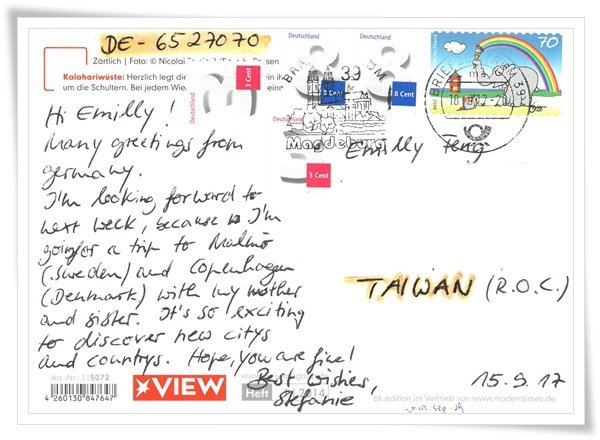 DE - 6527070
Zärtlich | Foto: © Nicolai
Kalahariwüste: Herzlich legt di
um die Schultern. Bei jedem Wie
Deutschland
3 Cent
Deutschland
8 Cent
Deutschland
8 Cent
3 Cent
70
BRIEFZENTRUM 39
Magdeburg
Hi Emilly!
Many greetings from
germany.
I'm looking forward to
next week, because I'm
going for a trip to Malmö
(Sweden) and Copenhagen
(Denmark) with my mother
and sister. It's so exciting
to discover new citys
and countrys. Hope, you are fine!
Best wishes,
Stefanie
Emilly Feng
TAIWAN (R.O.C.)
15.9.17
Art.-Nr.: 315072
4 260130 847647
VIEW
Heft
2014
ok.edition im Vertrieb von www.moderntimes.de